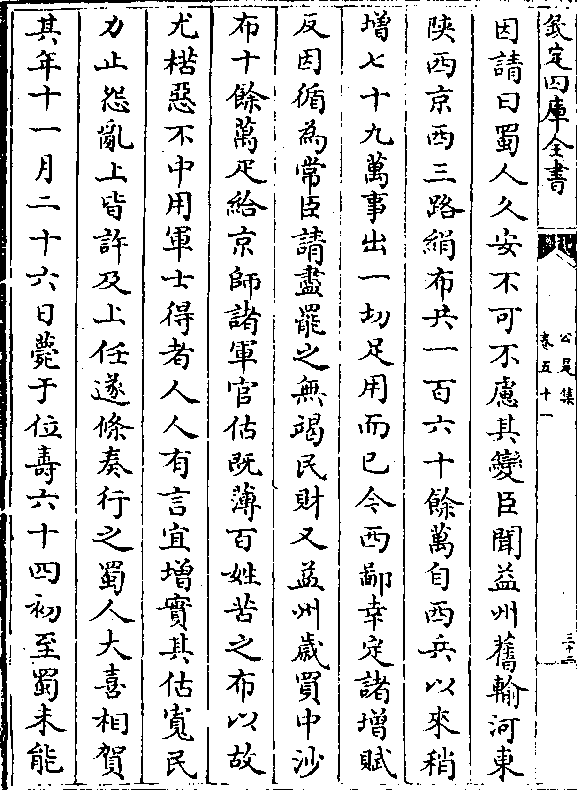 欽定四庫全書
公是集
卷五十一
三十二
因請曰蜀人久安不可不慮其變臣聞益州舊輸河東
陜西京西三路絹布共一百六十餘萬自西兵以來稍
增七十九萬事出一切足用而已今西鄙幸定諸增賦
反因循為常臣請盡罷之無竭民財又益州歳買中沙
布十餘萬疋給京師諸軍官估既薄百姓苦之布以故
尤楛惡不中用軍士得者人人有言宜增實其估寛民
力止怨亂上皆許及上任遂條奏行之蜀人大喜相賀
其年十一月二十六日薨于位壽六十四初至蜀未能